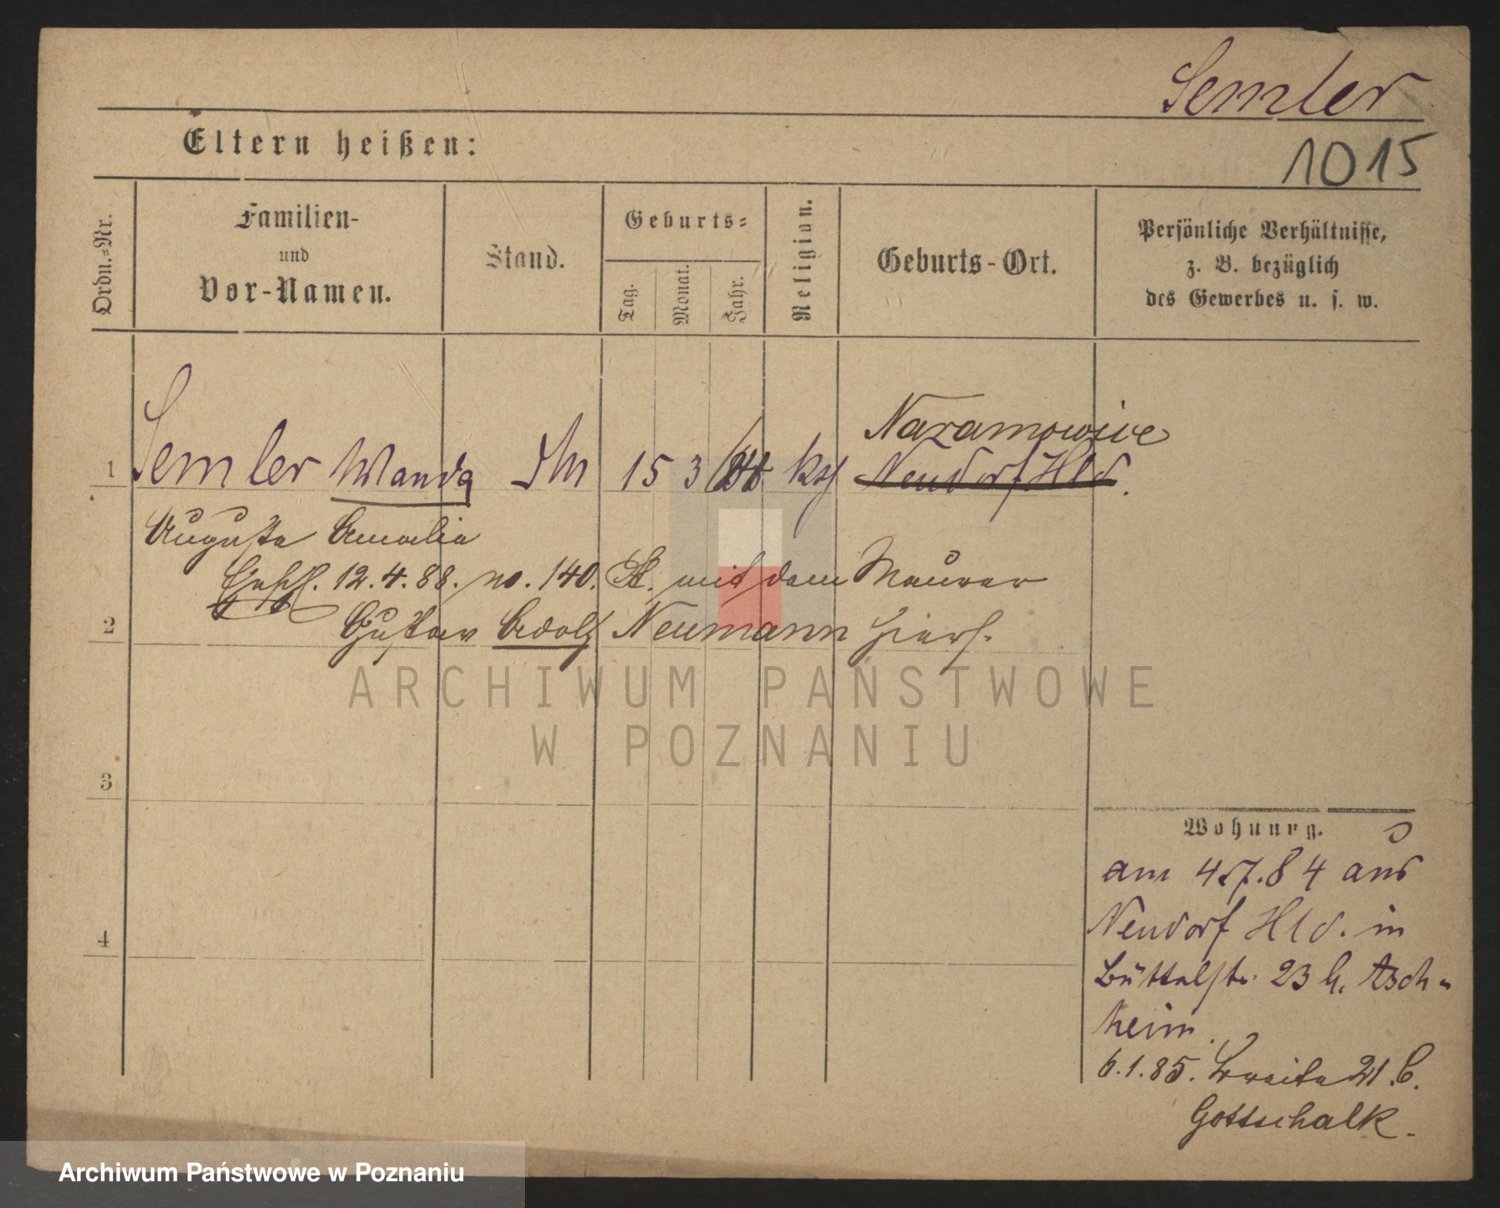 Semler
Eltern heißen:
1015
Ordn.-Nr.
Familien-
und
Vor-Namen.
Stand.
Geburts-
Tag.
Monat.
Jahr.
Religion.
Geburts-Ort.
Persönliche Verhältnisse,
z. B. bezüglich
des Gewerbes u. s. w.
Naramowice
1 Semler Wanda 15 3 Neudorf Hld.
Auguste Amalia
12.4.88. no. 140. St. mit dem Maurer
2 Gustav Adolf Neumann hiers.
ARCHIWUM PAŃSTWOWE
W POZNANIU
3
Wohnung.
am 4.7.84 aus
4 Neudorf Hld. in
Büttelstr. 23 b. Asch-
heim.
6.1.85. Breite 21 b.
Gottschalk.
Archiwum Państwowe w Poznaniu